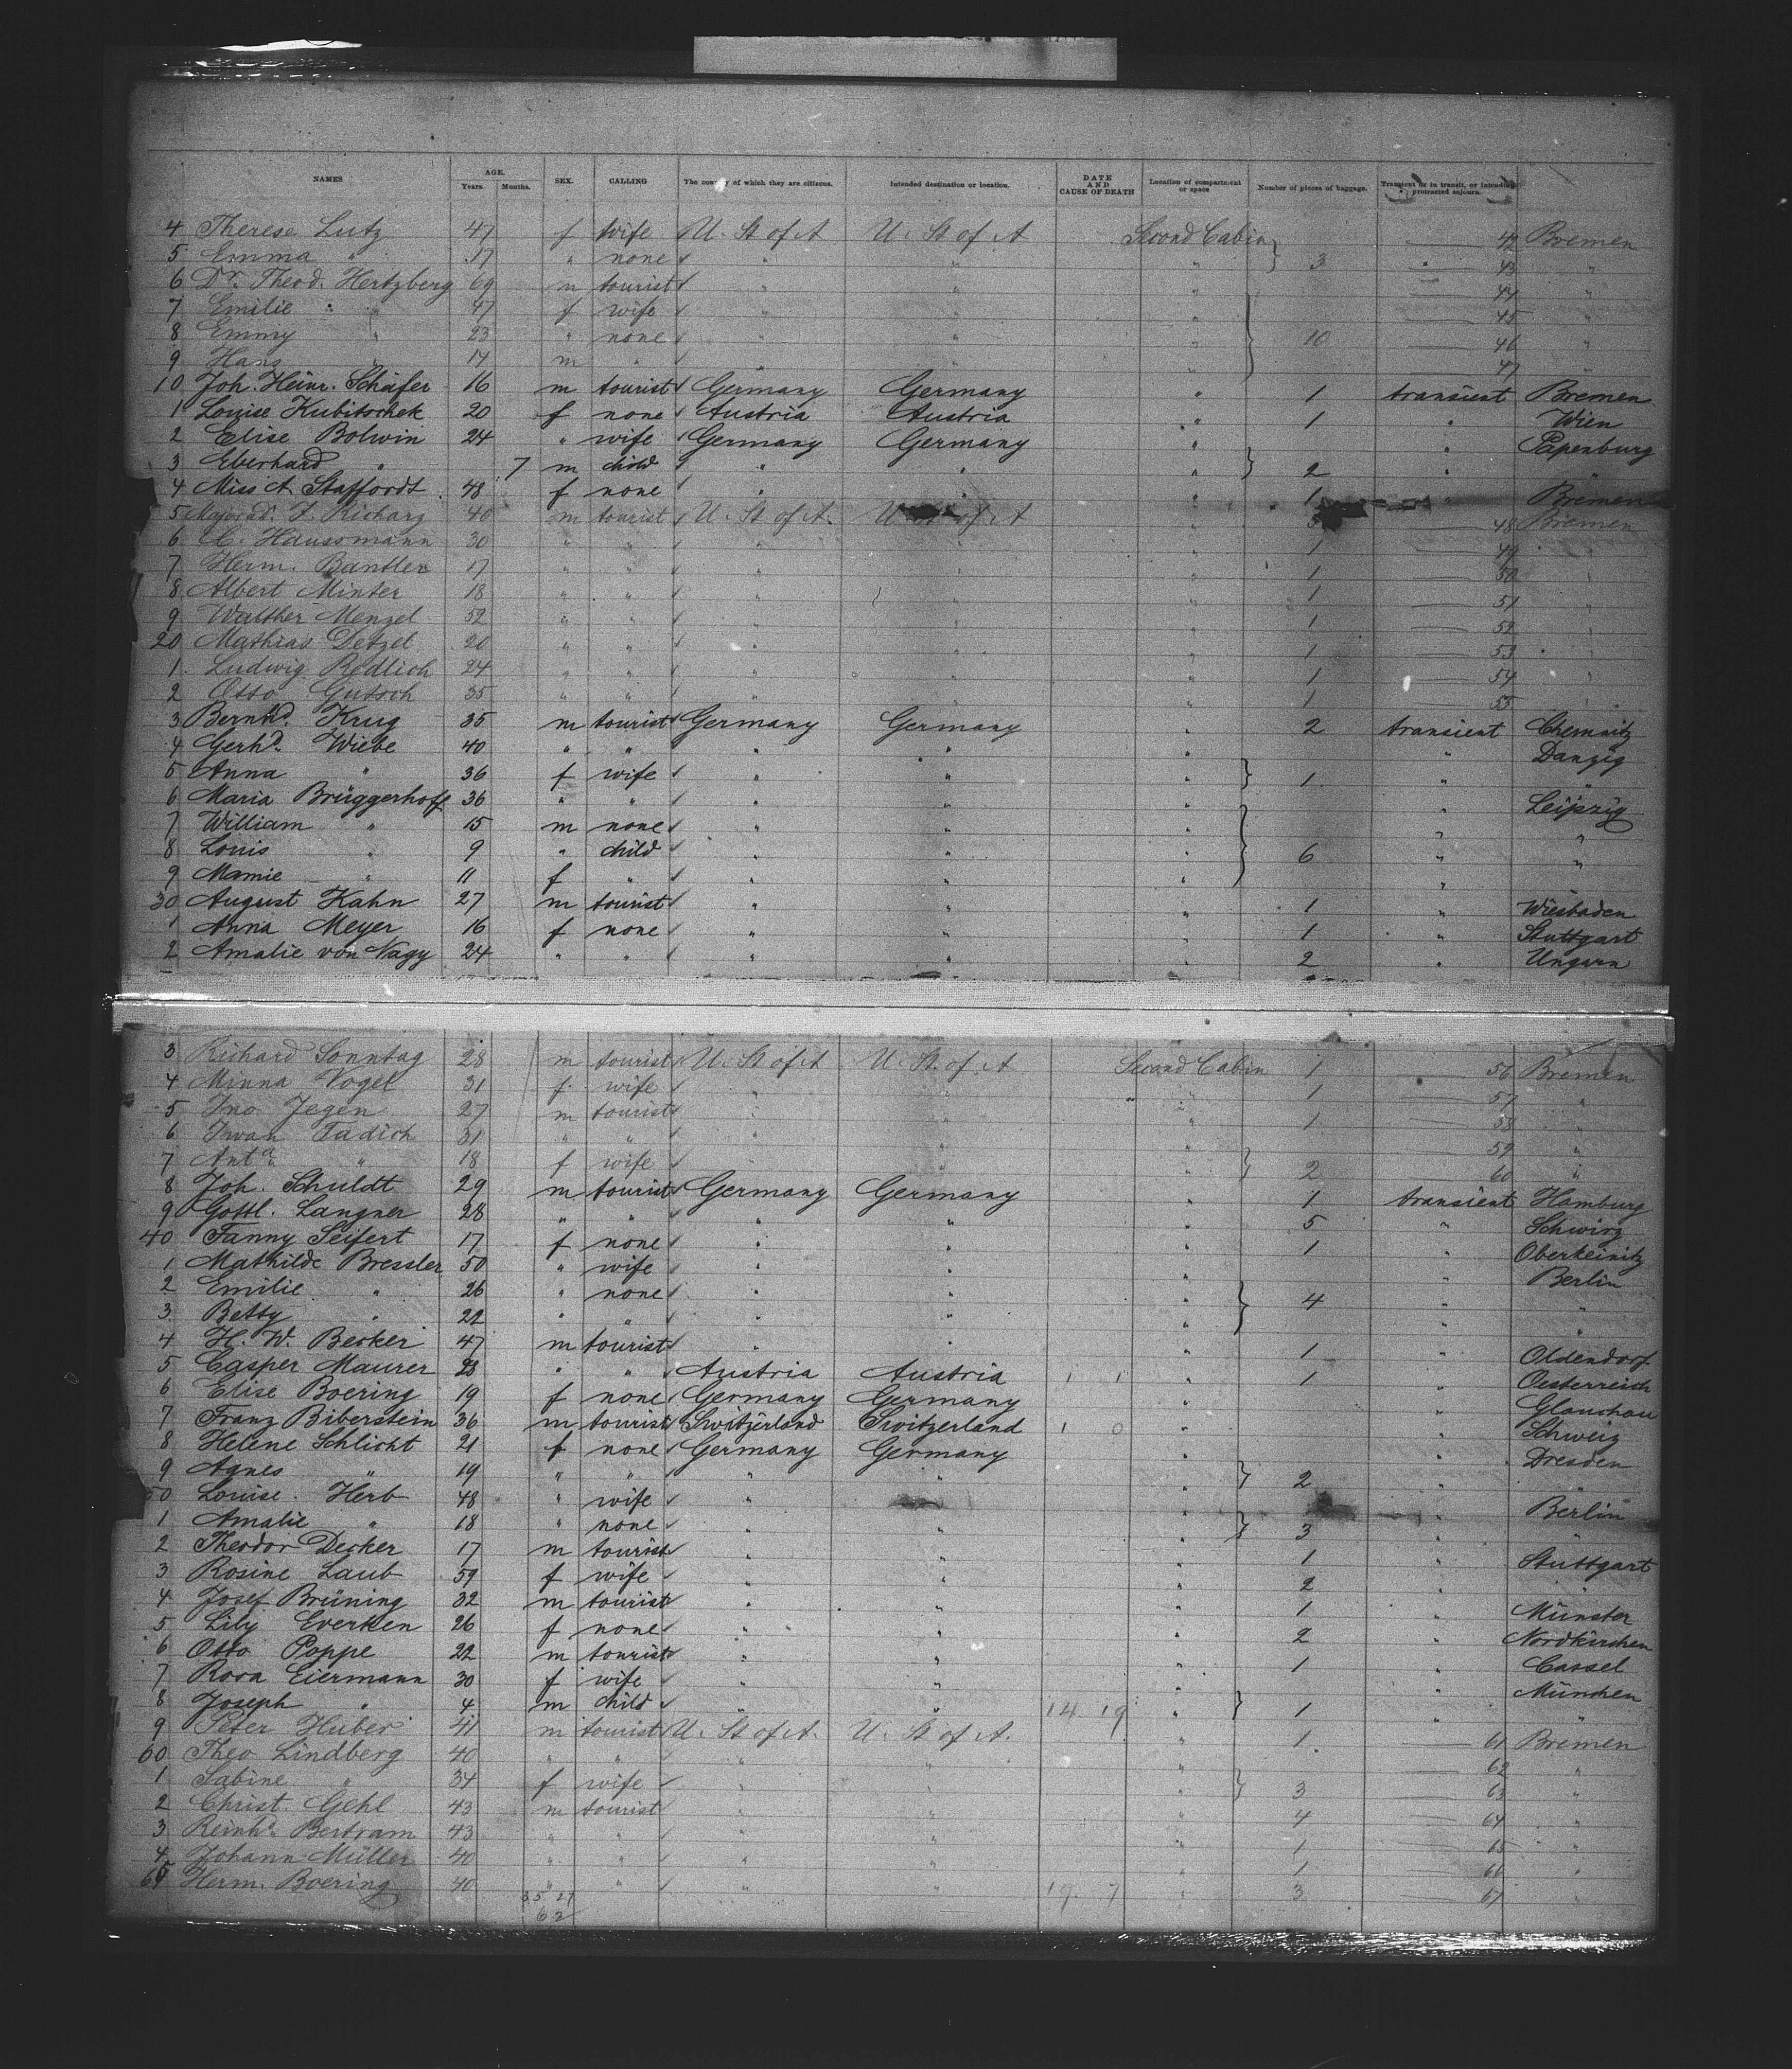 NAMES AGE. Years. Months. SEX. CALLING The country of which they are citizens. Intended destination or location. DATE AND CAUSE OF DEATH Location of compartment or space Number of pieces of baggage. Transient or in transit, or intending protracted sojourn.
4 Therese Lutz 47 f wife U. St of A U. St of A Second Cabin 42 Bremen
5 Emma " 17 " none " " " 3 43 "
6 Dr. Theod. Hertzberg 69 m tourist " " " 44 "
7 Emilie " 47 f wife " " " 45 "
8 Emmy " 23 " none " " " 10 46 "
9 Hans " 14 m " " " " 47 "
10 Joh. Heinr. Schäfer 16 m tourist Germany Germany " 1 transient Bremen
1 Louise Kubitschek 20 f none Austria Austria " 1 " Wien
2 Elise Bolwin 24 " wife Germany Germany " " Papenburg
3 Eberhard " 7 m child " " " 2 " "
4 Miss A Staffordt 48 f none " " " 1 " Bremen
5 F. Richarz 40 m tourist U. St of A. U. St of A " 48 Bremen
6 Haussmann 30 " " " " " 1 49 "
7 Herm. Bantlen 17 " " " " " 1 50 "
8 Albert Minter 18 " " " " " 1 51 "
9 Walther Menzel 52 " " " " " 1 52 "
20 Mathias Detzel 20 " " " " " 1 53 "
1 Ludwig Redlich 24 " " " " " 1 54 "
2 Otto Gutsch 35 " " " " " 1 55 "
3 Bernhd. Krug 35 m tourist Germany Germany " 2 transient Chemnitz
4 Gerhd. Wiebe 40 " " " " " " Danzig
5 Anna " 36 f wife " " " 1 " "
6 Maria Brüggerhoff 36 " " " " " " Leipzig
7 William " 15 m none " " " " "
8 Louis " 9 " child " " " 6 " "
9 Mamie " 11 f " " " " "
30 August Kahn 27 m tourist " " " 1 " Wiesbaden
1 Anna Meyer 16 f none " " " 1 " Stuttgart
2 Amalie von Nagy 24 " " " " " 2 " Ungarn
3 Richard Sonntag 28 m tourist U. St of A U. St. of A Second Cabin 1 56 Bremen
4 Minna Vogel 31 f wife " " " 1 57 "
5 Jno Jegen 27 m tourist " " " 1 58 "
6 Iwan Tadich 31 " " " " " 59 "
7 Anta " 18 f wife " " " 2 60 "
8 Joh. Schuldt 29 m tourist Germany Germany " 1 transient Hamburg
9 Gottl. Langner 28 " " " " " 5 " Schwirz
40 Fanny Seifert 17 f none " " " 1 " Oberkeinitz
1 Mathilde Bressler 50 " wife " " " " Berlin
2 Emilie " 26 " none " " " 4 " "
3 Betty " 22 " " " " " " "
4 H. W. Becker 47 m tourist " " " 1 " Oldendorf
5 Casper Maurer 28 " " Austria Austria 1 1 " 1 Oesterreich
6 Elise Boering 19 f none Germany Germany " " Glauchau
7 Franz Biberstein 36 m tourist Switzerland Switzerland 1 0 " " Schweiz
8 Helene Schlicht 21 f none Germany Germany " " Dresden
9 Agnes " 19 " " " " " 2 " "
50 Louise Herb 48 " wife " " " Berlin
1 Amalie " 18 " none " " " 3 " "
2 Theodor Decker 17 m tourist " " " 1 " Stuttgart
3 Rosine Laub 59 f wife " " " 2 " "
4 Josef Brüning 32 m tourist " " " 1 " Münster
5 Lily Everken 26 f none " " " 2 " Nordkirchen
6 Otto Poppe 22 m tourist " " " 1 " Cassel
7 Rosa Eiermann 30 f wife " " " " München
8 Joseph " 4 m child " " 14 19 " 1 " "
9 Peter Huber 41 m tourist U. St of A. U. St of A. " 1 61 Bremen
60 Theo Lindberg 40 " " " " " 62 "
1 Sabine " 34 f wife " " " 3 63 "
2 Christ. Gehl 43 m tourist " " " 4 64 "
3 Reinhd. Bertram 43 " " " " " 1 65 "
4 Johann Müller 40 " " " " " 1 66 "
65 Herm. Boering 40 " " " " 19 7 " 3 67 "
35 27
62